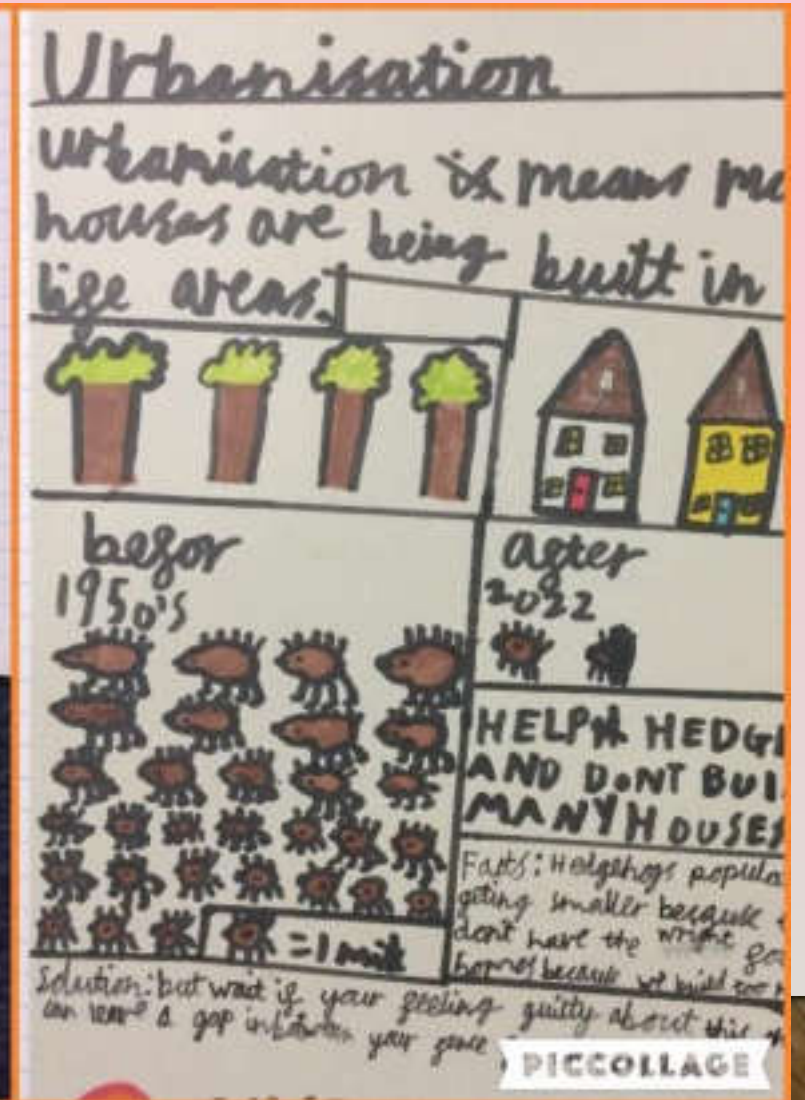 Urbanisation
Urbanisation is means mo
houses are being built in
life areas.
befor
1950's
after
2022
HELP HEDG
AND DONT BUI
MANY HOUSES
Facts: Hedgehogs popula
geting smaller because
don't have the wright foo
homes because we build too
= 1 mill
Solution: but wait if your feeling guilty about this
can leave a gap inbetween your
PICCOLLAGE